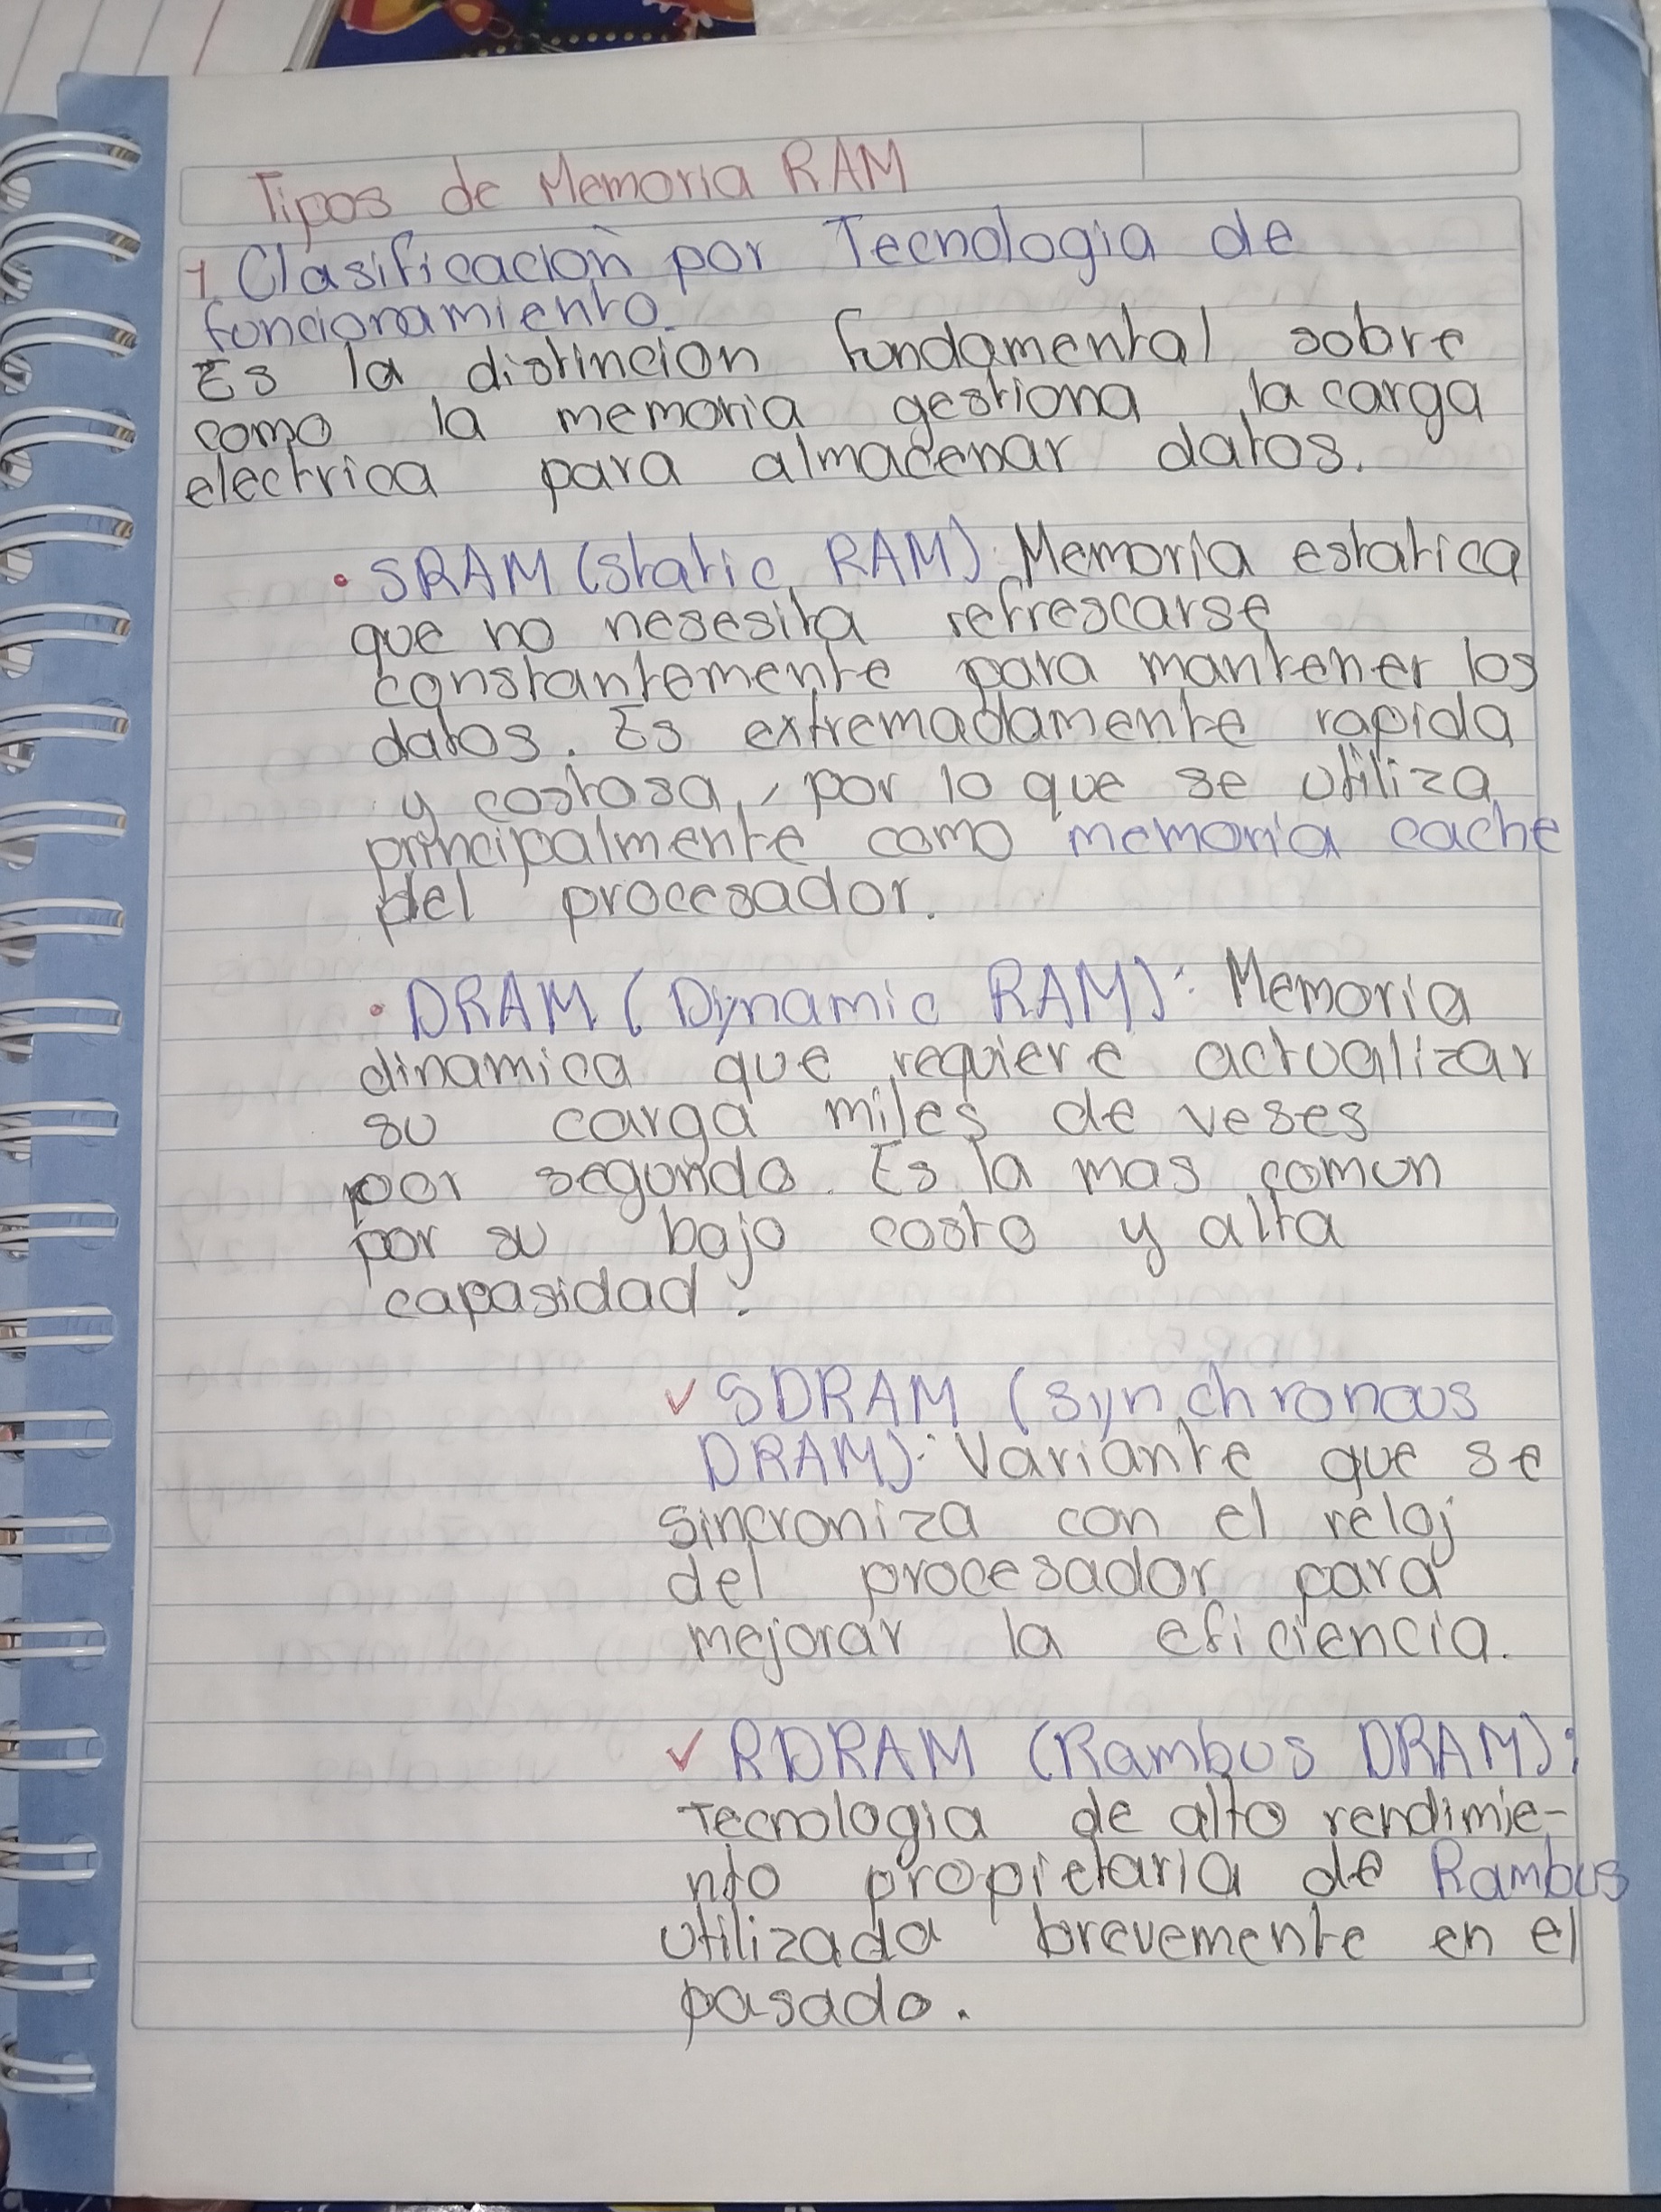 Tipos de Memoria RAM
1. Clasificación por Tecnologia de
funcionamiento.
Es la distincion fundamental sobre
como la memoria gestiona la carga
electrica para almacenar datos.
• SRAM (Static RAM): Memoria estatica
que no nesesita refrescarse
constantemente para mantener los
datos. Es extremadamente rapida
y costosa, por lo que se utiliza
principalmente como memoria cache
del procesador.
• DRAM (Dynamic RAM): Memoria
dinamica que requiere actualizar
su carga miles de veses
por segundo. Es la mas comun
por su bajo costo y alta
capasidad.
✓ SDRAM (Synchronous
DRAM): Variante que se
sincroniza con el reloj
del procesador para
mejorar la eficiencia.
✓ RDRAM (Rambus DRAM):
Tecnologia de alto rendimie-
nto propietaria de Rambus
utilizada brevemente en el
pasado.